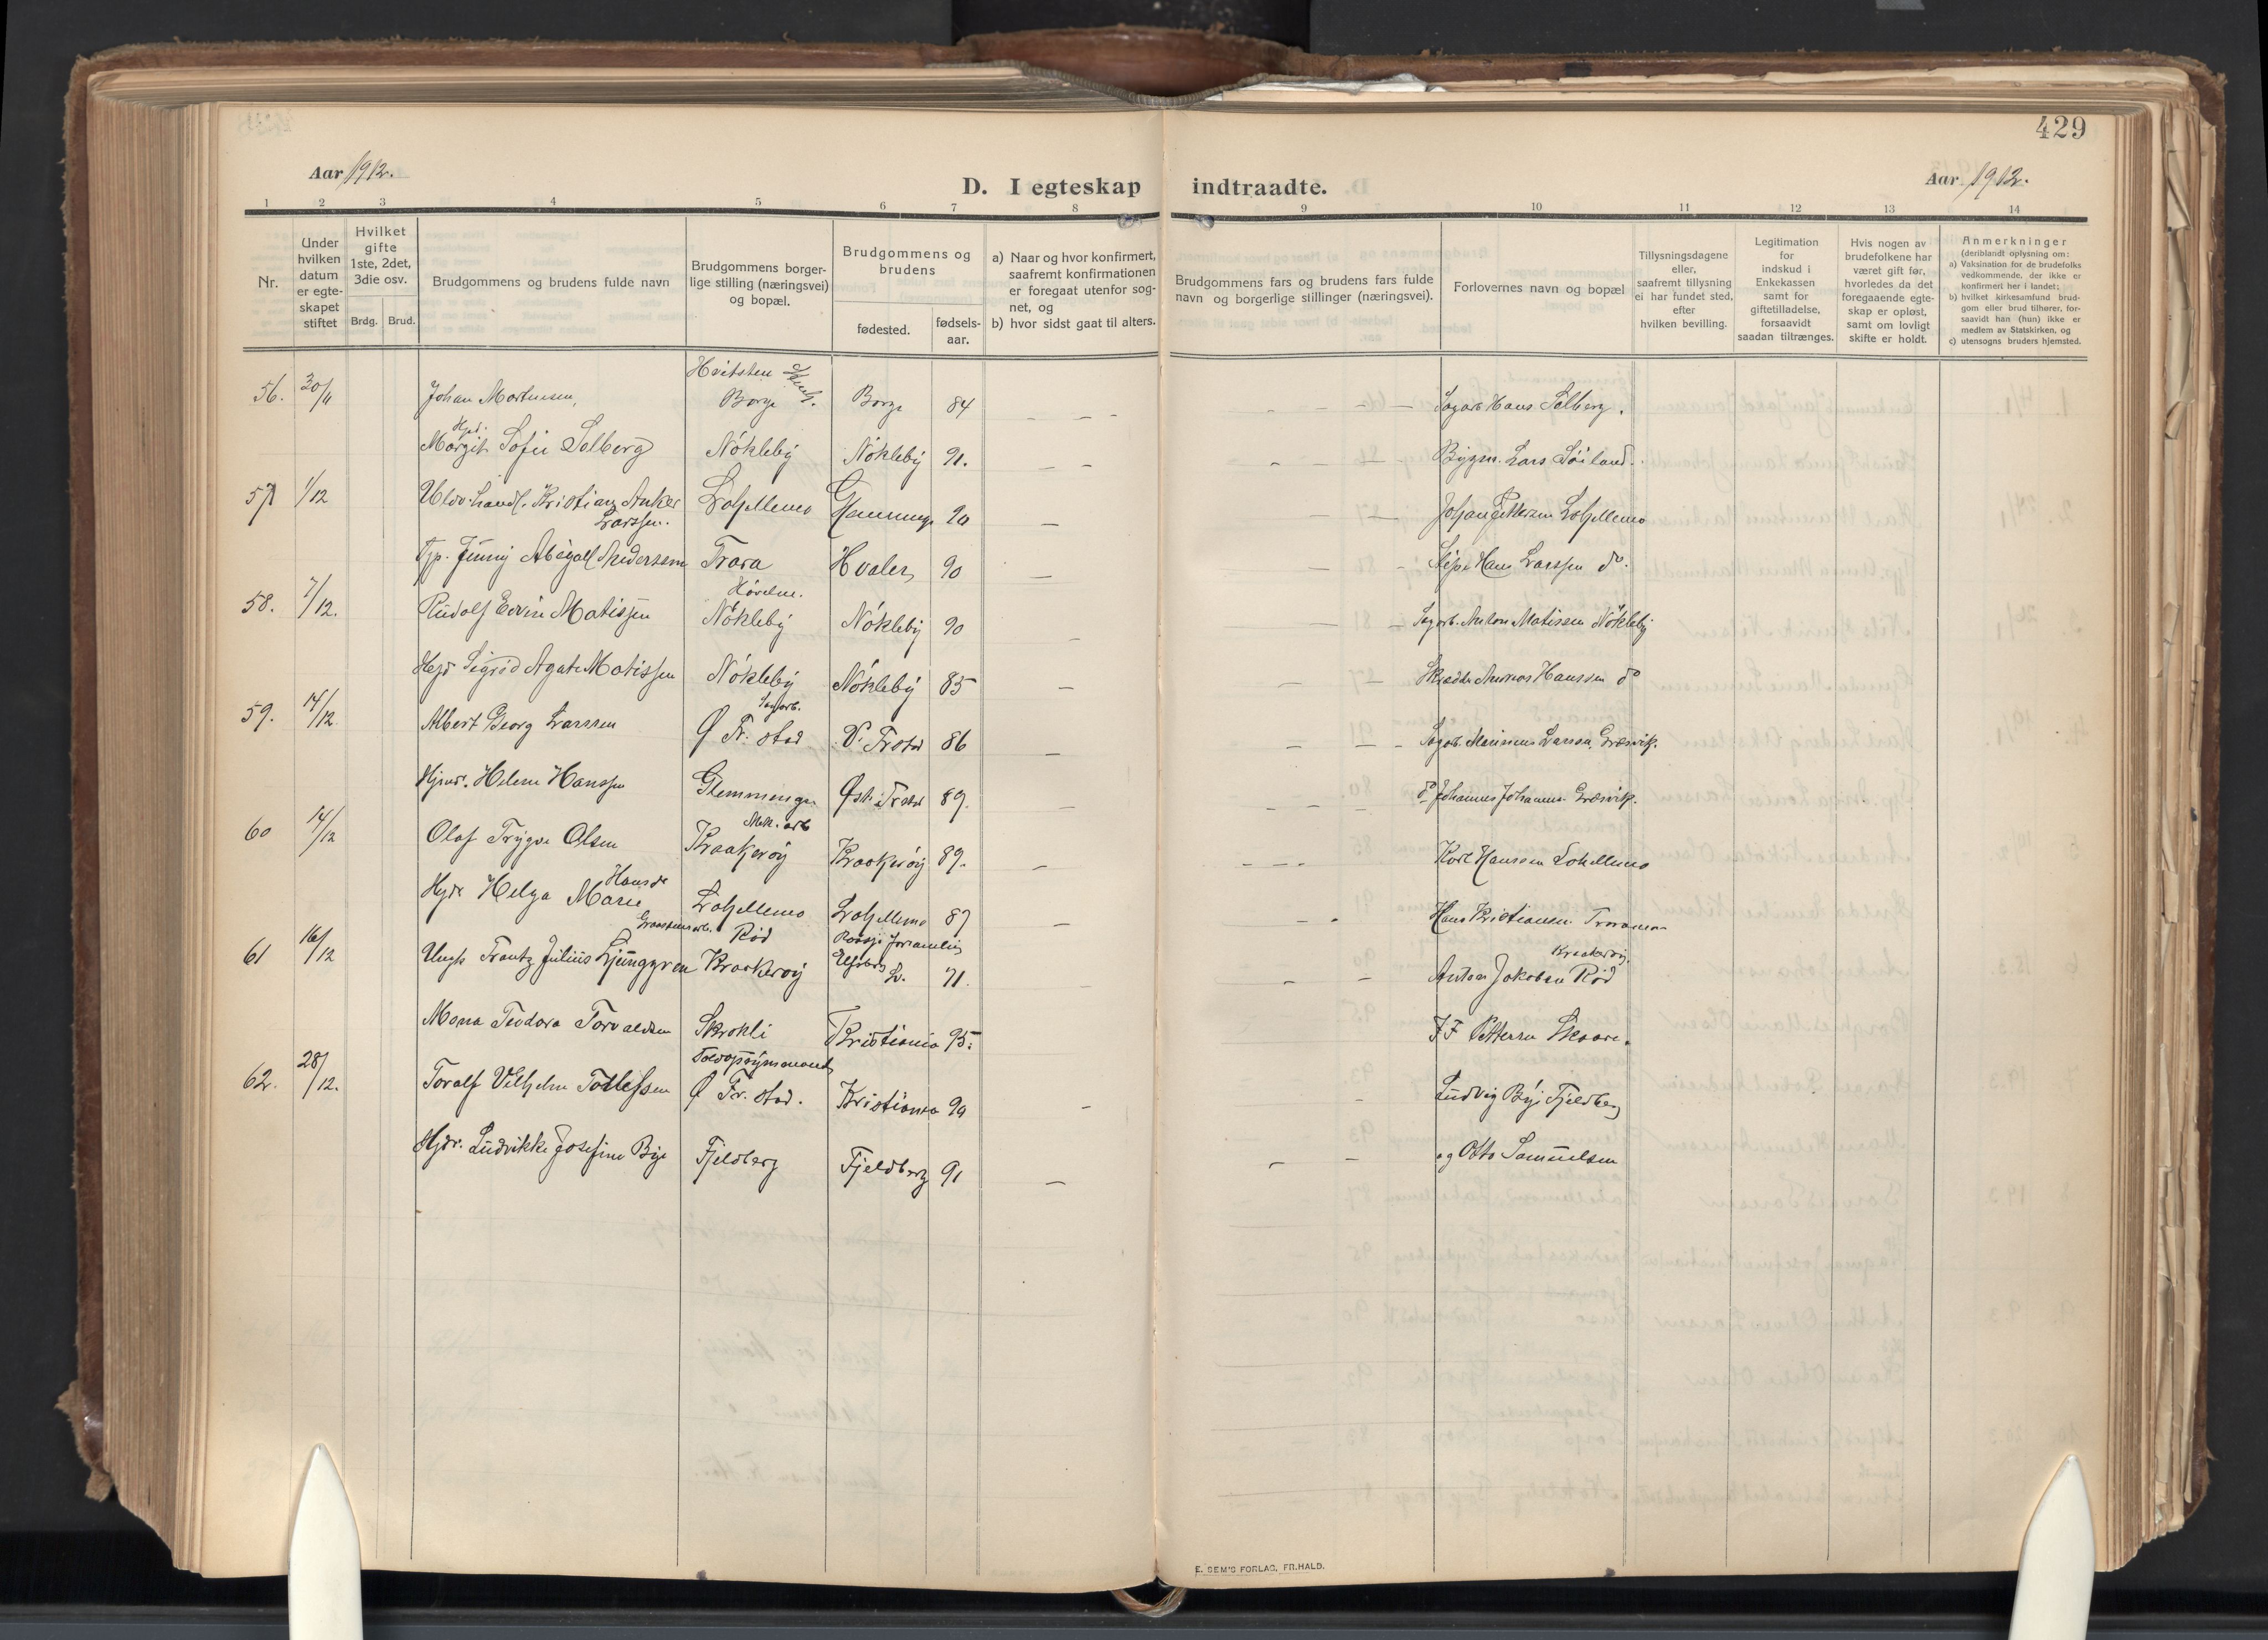 429
Aar 1912.
D. I egteskap indtraadte.
Aar 1912.
1 2 3 4 5 6 7 8 9 10 11 12 13 14
Nr.
Under hvilken datum er egteskapet stiftet
Hvilket gifte 1ste, 2det, 3die osv.
Brdg. Brud.
Brudgommens og brudens fulde navn
Brudgommens borgerlige stilling (næringsvei) og bopæl.
Brudgommens og brudens
fødested.
fødselsaar.
a) Naar og hvor konfirmert, saafremt konfirmationen er foregaat utenfor sognet, og
b) hvor sidst gaat til alters.
Brudgommens fars og brudens fars fulde navn og borgerlige stillinger (næringsvei).
Forlovernes navn og bopæl
Tillysningsdagene eller, saafremt tillysning ei har fundet sted, efter hvilken bevilling.
Legitimation for indskud i Enkekassen samt for giftetilladelse, forsaavidt saadan tiltrænges.
Hvis nogen av brudefolkene har været gift før, hvorledes da det foregaaende egteskap er opløst, samt om lovligt skifte er holdt.
Anmerkninger (deriblandt oplysning om:
a) Vaksination for de brudefolks vedkommende, der ikke er konfirmert her i landet;
b) hvilket kirkesamfund brudgom eller brud tilhører, forsaavidt han (hun) ikke er medlem av Statskirken, og
c) utensogns bruders hjemsted.
Hvitsten
56. 30/11 Johan Mortensen, Borge Borge 84 — — — — — — — Sagarb Hans Solberg.
Hjd.
Margit Sofie Solberg Nökleby Nökleby 91. — — — — Bygm. Lars
57 1/12 Kristian Anker Larssen. Lahellemo Glemminge 90 — — — Johan Pettersen Lahellemo
Jenny Abigael Andersen Trara Hvaler 90 — — — Hans Larssen do.
Høvelm.
58. 7/12. Rudolf Edvin Matissen Nökleby Nökleby 90 — — — Sagarb. Anton Matissen Nökleby
Hejd Sigrid Agate Matissen Nökleby Nökleby 85 — — — Hanssen do
Sagarb.
59. 14/12. Albert Georg Larssen Ø Fr. stad V. Frstad 86 — — — — Sagarb. Larsen, Græsvik.
Helene Hanssen Glemminge Øst. Frstad 89. — — — — do Johannes Johannes. Græsvik.
Mek. arb
60 14/12 Olaf Trygve Olsen Kraakerøy Kraakerøy 89. — — — — Karl Hanssen Lahellemo
Hjd Helga Marie Hansdr Lahellemo Lahellemo 87 — — — Hans Kristiansen
Rød
61 16/12 Ungk Frantz Julius Ljunggren Kraakerøy L. 71. — — — Anton Jakobsen Rød Kraakerøy.
Mona Teodora Torvaldsen Skrokli Kristiania 95. J F Pettersen Skaare.
62. 28/12. Toralf Vilhelm Tollefsen Ø Fr. stad. Kristiania 90 — — Ludvig Bye Fjeldberg
Hjdr. Ludvikke Josefine Bye Fjeldberg Fjeldberg 91 — — — og Otto Samuelsen
E. SEM'S FORLAG, FR.HALD.